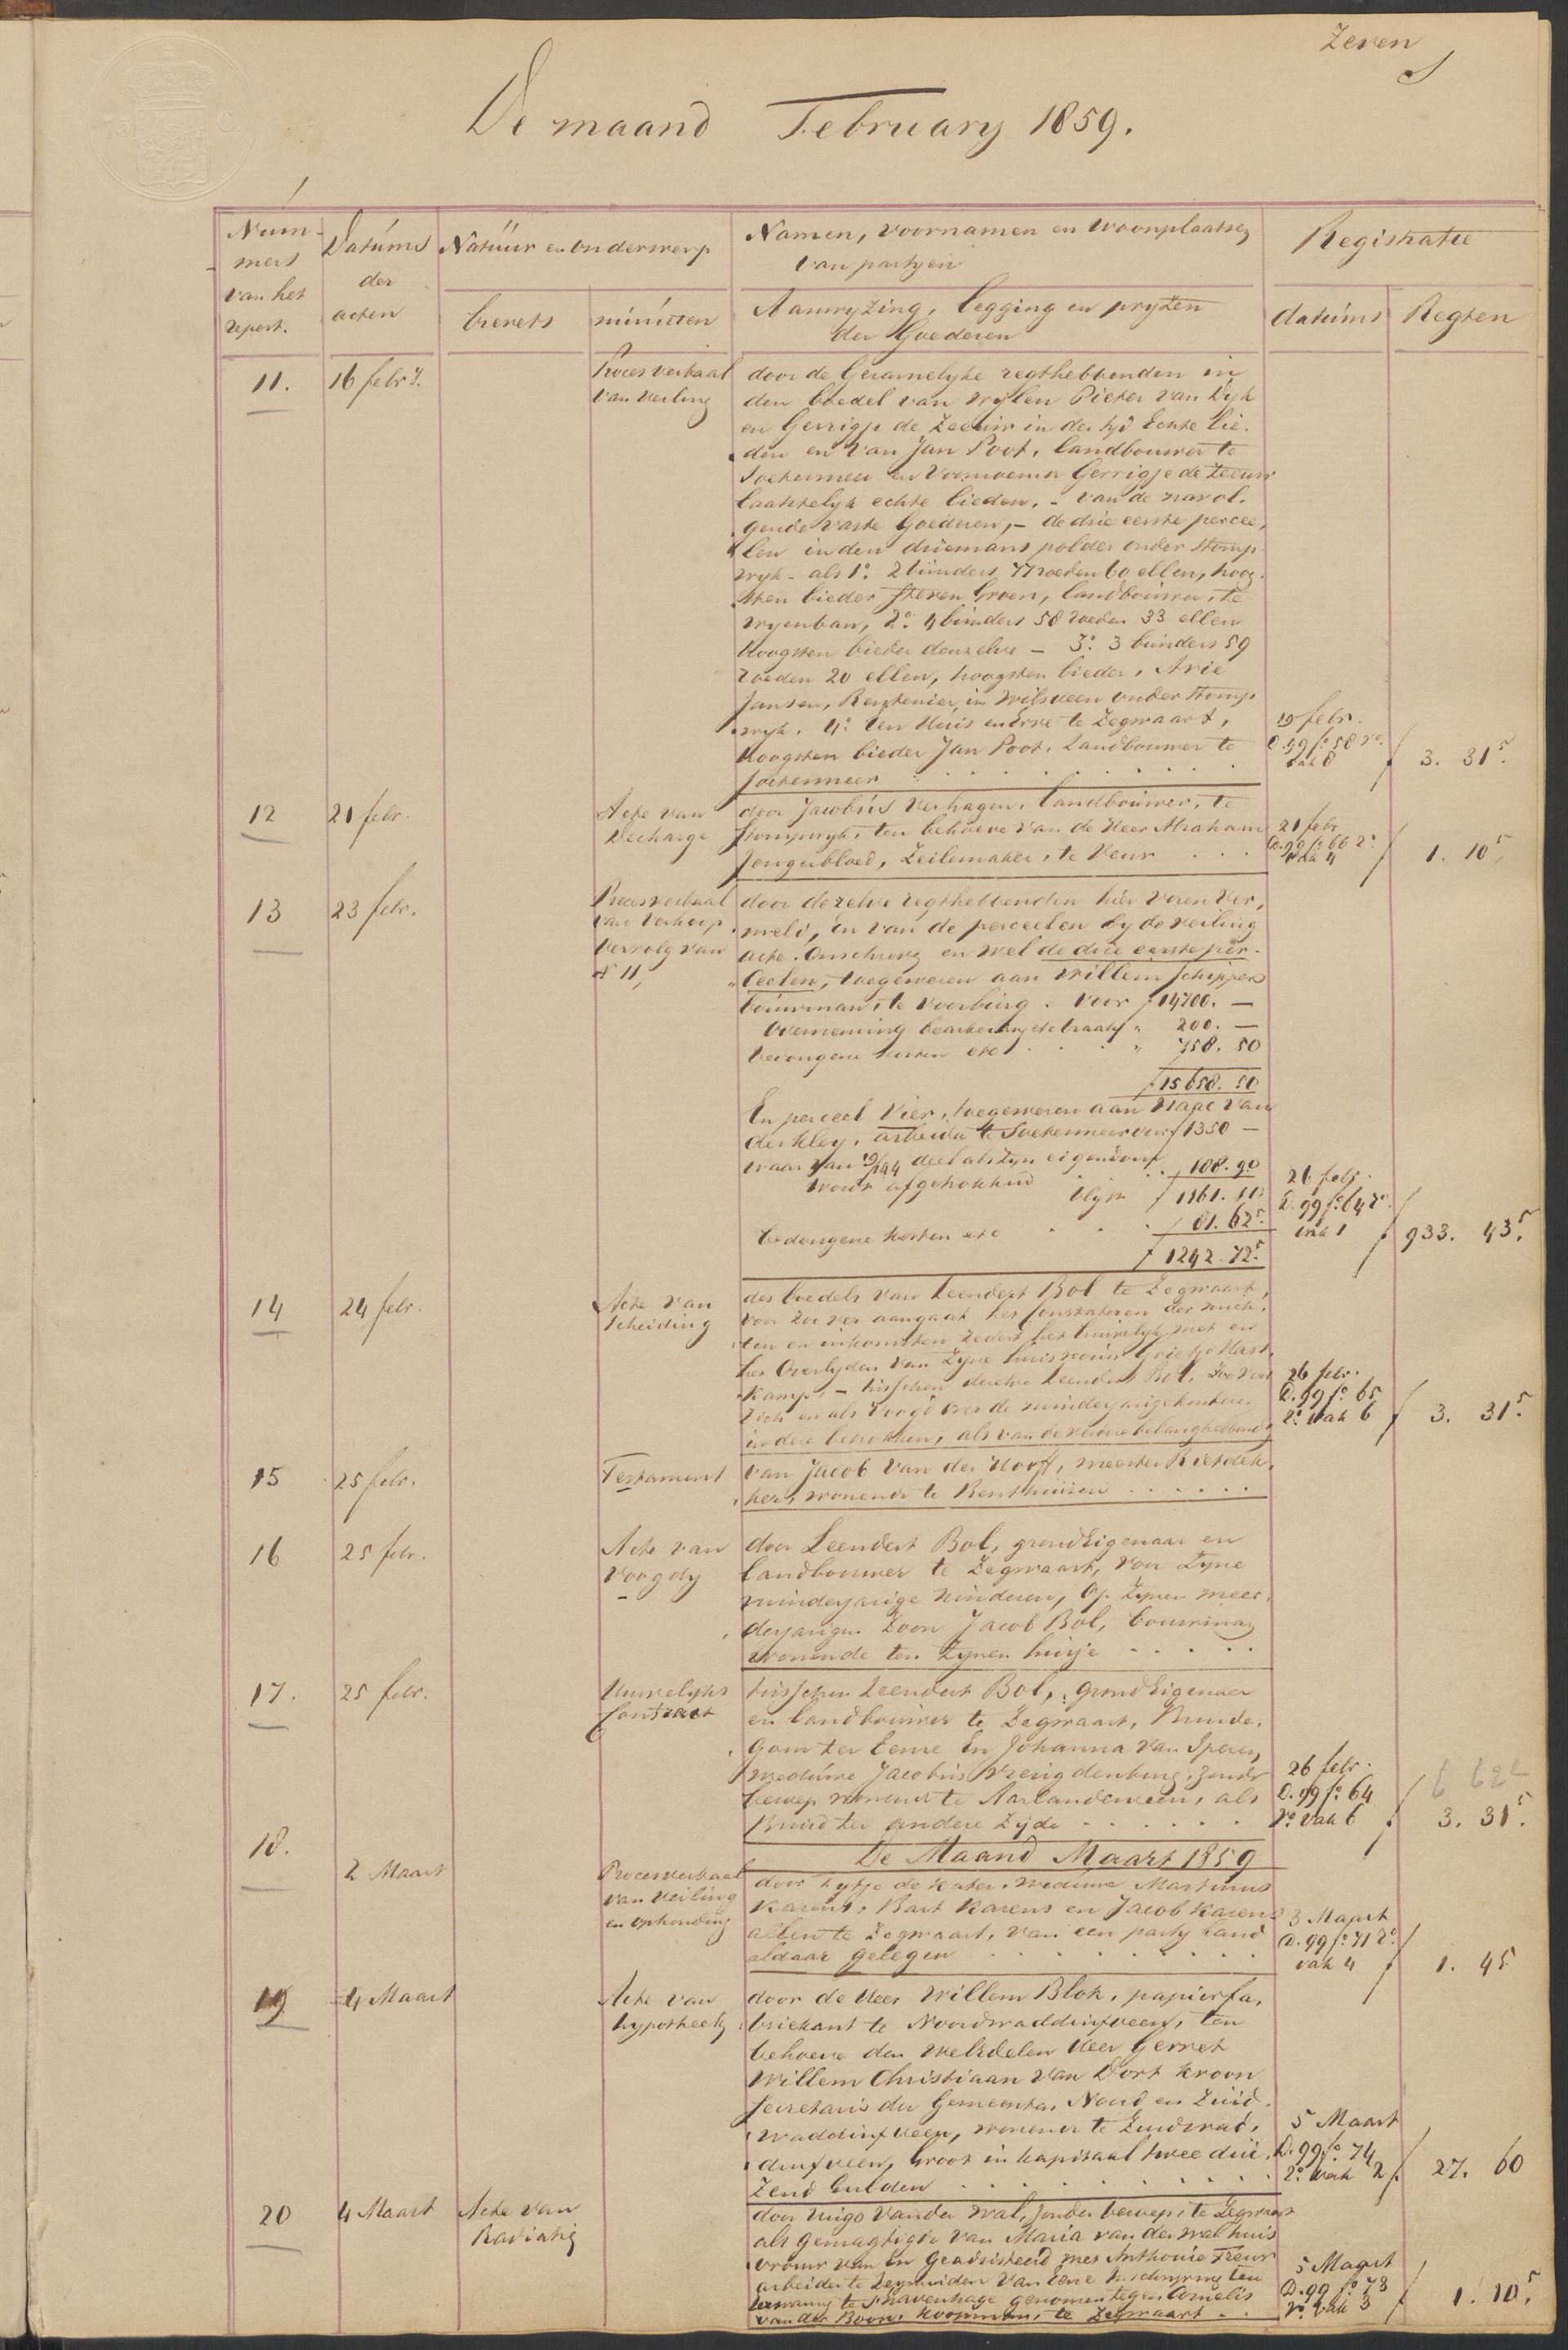 Zeven
De maand February 1859.
Num-
mers
van het
repert.
Datums
der
acten
Natuur en Onderwerp
brevets
minuten
Namen, voornamen en woonplaatsen
van partyen
Aanwyzing, legging en pryzen
der Goederen
Registratie
datums
Regten
11.
16 febry.
Proces verbaal
van veiling
door de Gezamelyke regthebbenden in
den boedel van wylen Pieter van Dyk
en Gerrigje de Zeeuw in der tyd Echte lie-
den en van Jan Poot, landbouwer te
Soetermeer en voornoemde Gerrigje de Zeeuw
laatstelyk echte lieden, - van de navol-
gende vaste Goederen, - de drie eerste percee-
len in den driemans polder onder Stomp-
wyk - als 1o. 2 bunders 77 roeden 60 ellen, hoog-
sten bieder Steven Groen, landbouwer, te
Vryenban, 2o. 4 bunders 58 roeden 33 ellen
hoogsten bieder denzelve - 3o. 3 bunders 59
roeden 20 ellen, hoogsten bieder, Arie
Jansen, Rentenier, in Wilsveen onder Stomp-
wyk. 4o. een Huis en Erve te Zegwaart,
hoogsten bieder Jan Poot, Landbouwer te
Soetermeer
19 febr.
D. 99 fo. 58 ro.
vak 8
f 3. 31 5.
12
21 febr.
Acte van
decharge
door Jacobus Verhagen, landbouwer, te
Stompwyk, ten behoeve van de Heer Abraham
Jongebloed, Zeilemaker, te Veur
21 febr
D. 99 fo 66 ro
vak 4
f 1. 10 5.
13
23 febr.
Procesverbaal
van Verkoop
vervolg van
No 11,
door dezelve regthebbenden hier voren ver-
meld, en van de perceelen by de veiling
acte omschreven en wel de drie eerste per-
ceelen, toegewezen aan Willem Schipper
bouwman, te Voorburg. voor f 14700. —
Overneming 200. —
bedongene kosten etc 758. 50
f 15658. 50
En perceel Vier, toegewezen aan Isaac van
der Kley, arbeider te Soetermeer voor f 1350 —
waar van 19/144 deel als zyn eigendom
word afgetrokken 188. 90
blyft f 1161. 10
bedongene kosten etc f 81. 62 5.
f 1242. 72 5.
26 febr.
D. 99 fo 64 ro.
vak 1
f 933. 43 5.
14
24 febr.
Acte van
Scheiding
des boedels van Leendert Bol te Zegwaart,
voor zoo ver aangaat het Constateren der
en inkomsten zedert het huwelyk met en
het Overlyden van zyne huisvrouw Grietje Hast-
kamp, - tusschen denzelve Leendert Bol, zoo voor
zich en als voogd over de minderjarige kinderen
in deze betrokken, als van de verdere belanghebbende
26 febr.
D. 99 fo 65
ro. vak 6
f 3. 31 5.
15
25 febr.
Testament
van Jacob van der Hooff, meester Rietdek-
ker, wonende te Benthuizen
16
25 febr.
Acte van
Voogdy
door Leendert Bol, grondeigenaar en
landbouwer te Zegwaart, voor zyne
minderjarige kinderen, Op zynen meer-
derjarigen Zoon Jacob Bol, bouwman
wonende ten zynen huize
17.
25 febr.
Huwelyks
Contract
tusschen Leendert Bol, grondeigenaar
en landbouwer te Zegwaart, Bruide-
gom ter Eenre En Johanna van Speren,
weduwe Jacobus Vreugdenburg, zonder
beroep wonende te Aarlanderveen, als
Bruid ter andere zyde
26 febr.
D. 99 fo. 64
ro. vak 6
6 62
f 3. 31 5.
De Maand Maart 1859
18.
2 Maart
Procesverbaal
van veiling
en ophouding
door Tytje de Kater, weduwe Martinus
Karens, Bart Karens en Jacob Karens
allen te Zegwaart, van een party land
aldaar gelegen
3 Maart
D. 99 fo 71 ro.
vak 4
f 1. 45
19
4 Maart
Acte van
hypotheek
door de Heer Willem Blok, papierfa-
briekant te Noordwaddinxveen, ten
behoeve den weledelen Heer Gerret
Willem Christiaan van Dort Kroon
Secretaris der Gemeenten Noord en Zuid-
waddinxveen, wonende te Zuidwad-
dinxveen, groot in kapitaal twee dui-
zend Gulden
5 Maart
D. 99 fo 74
ro. vak 2
f 27. 60
20
4 Maart
Acte van
Radiatie
door Hugo van der Wal, zonder beroep, te Zegwaart
als gemagtigde van Maria van der Wal huis-
vrouw van en geadsisteerd met Anthonie Treur
arbeider te Leymuiden van Eene inschryving ten
bewaring te s'Gravenhage genomen tegen Cornelis
van der Boon, koopman, te Zegwaart
5 Maart
D. 99 fo 73
ro. vak 3
f 1. 10 5.